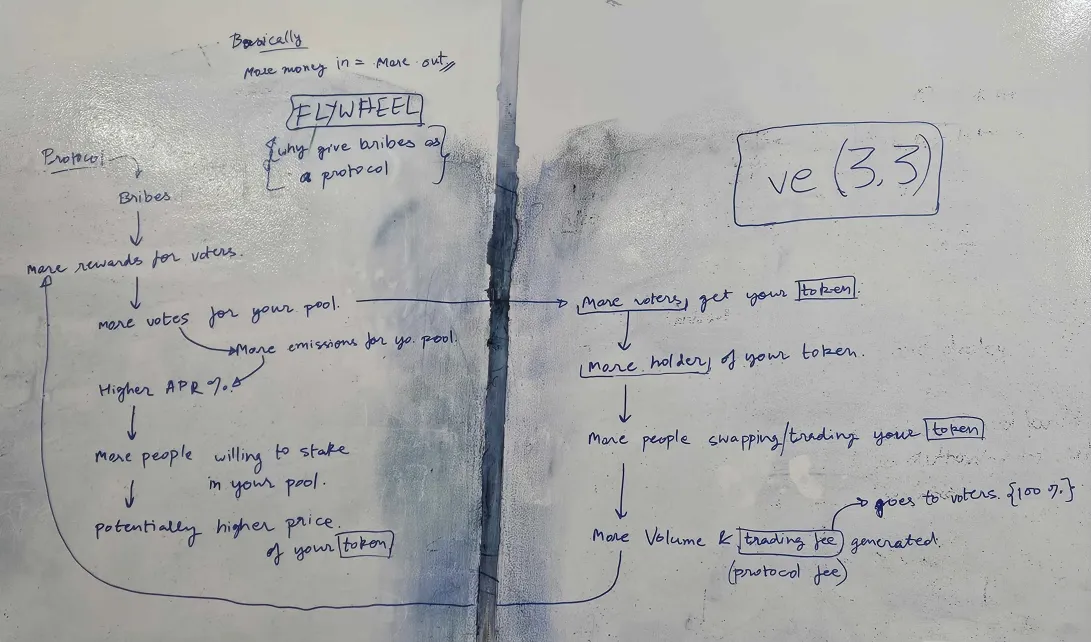 Basically
More money in = More out
FLYWHEEL
why give bribes as
a protocol
Protocol
Bribes
More rewards for voters.
More votes for your pool.
More emissions for yo. pool.
Higher APR %.
More people willing to stake
in your pool.
potentially higher price.
of your token
ve (3,3)
More voters, get your token.
More holder, of your token.
More people swapping/trading your token
More Volume & trading fee generated.
(protocol fee)
goes to voters. {100 %}